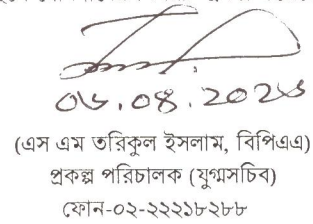 (এস এম তরিকুল ইসলাম, বিপিএএ)
প্রকল্প পরিচালক (যুগ্মসচিব)
ফোন-০২-২২২১৮২৮৮